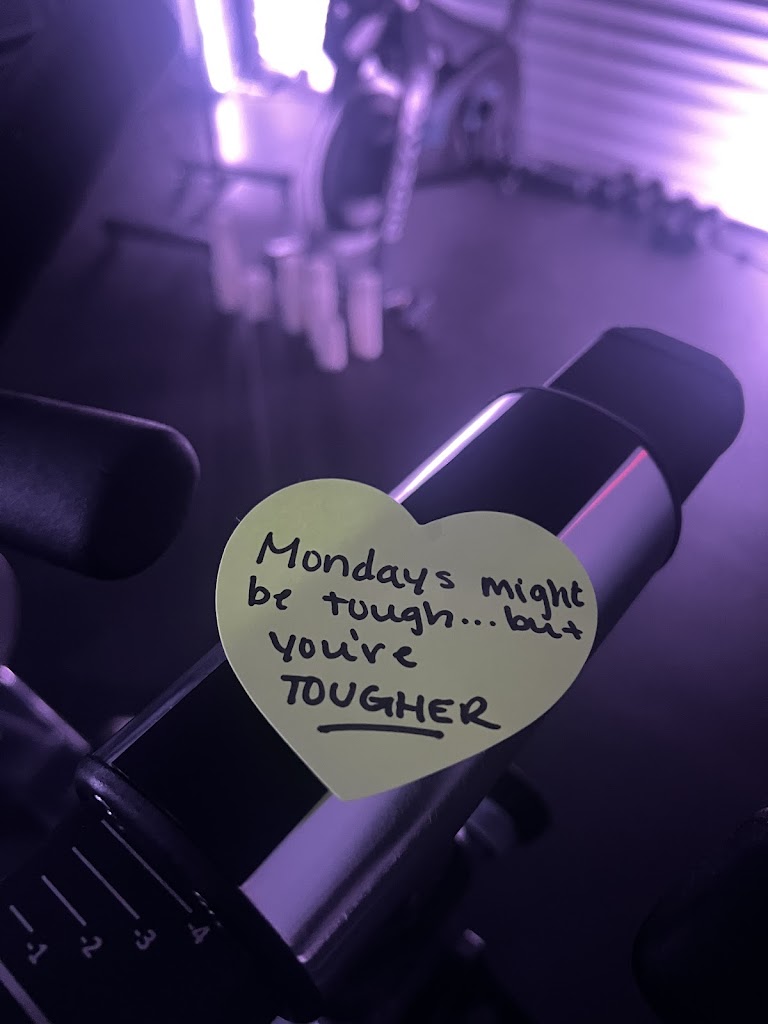 Mondays might
be tough... but
you're
TOUGHER
1
2
3
4